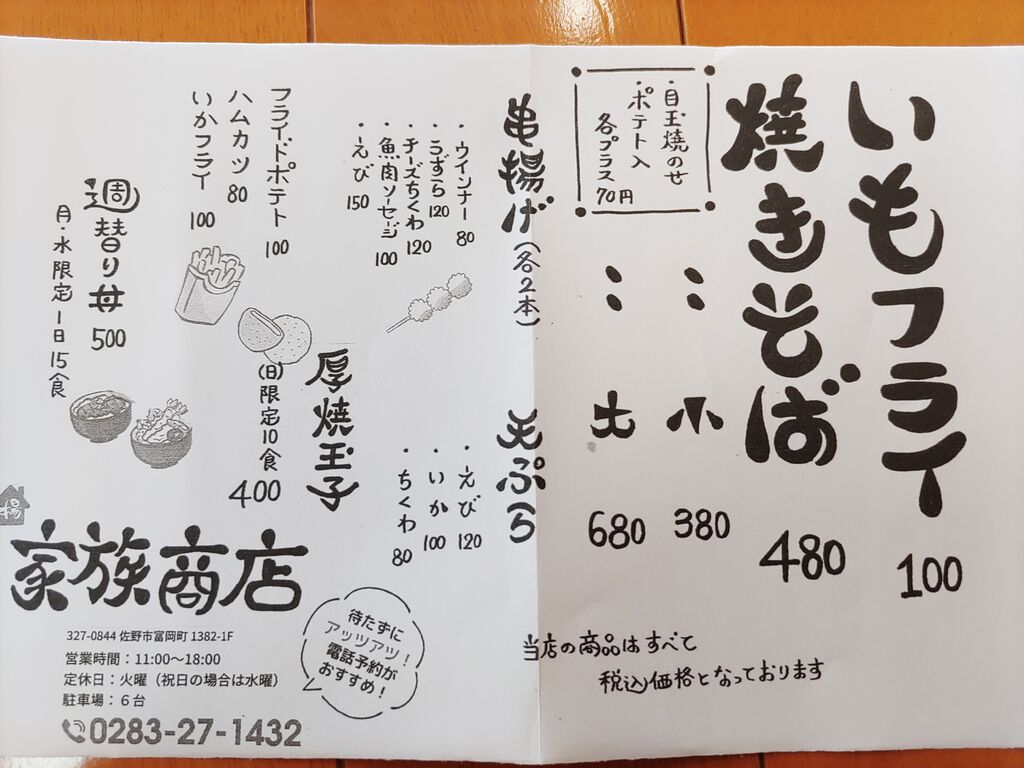 いもフライ 100
焼きそば 480
小 380
大 680
・目玉焼のせ
・ポテト入
各プラス
70円
串揚げ(各2本)
・ウインナー 80
・うずら 120
・チーズちくわ 120
・魚肉ソーセージ 100
・えび 150
天ぷら
・えび 120
・いか 100
・ちくわ 80
フライドポテト 100
ハムカツ 80
いかフライ 100
厚焼玉子
(日)限定10食
400
週替り丼 500
月・水限定1日15食
当店の商品はすべて
税込価格となっております
揚
家族商店
327-0844 佐野市富岡町 1382-1F
営業時間:11:00～18:00
定休日:火曜(祝日の場合は水曜)
駐車場:6台
0283-27-1432
待たずに
アッツアツ!
電話予約が
おすすめ!